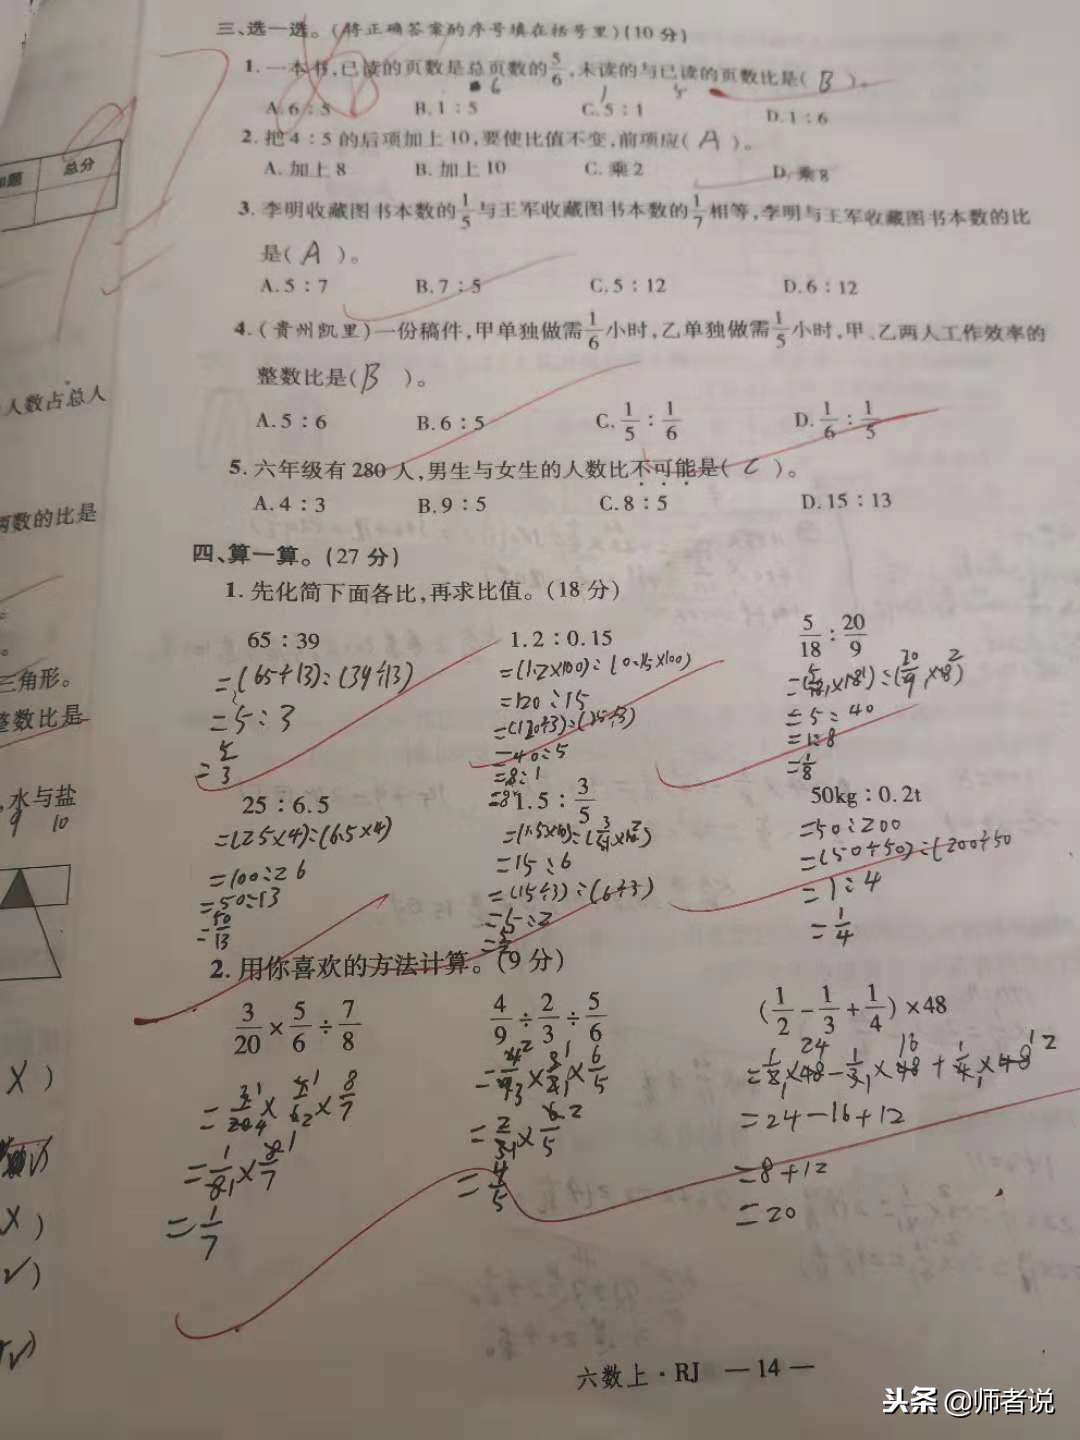 三、选一选。(将正确答案的序号填在括号里)(10分)
1. 一本书,已读的页数是总页数的5/6,未读的与已读的页数比是( B )。
A. 6:5 B. 1:5 C. 5:1 D. 1:6
2. 把4:5的后项加上10,要使比值不变,前项应( A )。
A. 加上8 B. 加上10 C. 乘2 D. 乘8
3. 李明收藏图书本数的1/5与王军收藏图书本数的1/7相等,李明与王军收藏图书本数的比
是( A )。
A. 5:7 B. 7:5 C. 5:12 D. 6:12
4. (贵州凯里)一份稿件,甲单独做需1/6小时,乙单独做需1/5小时,甲、乙两人工作效率的
整数比是( B )。
A. 5:6 B. 6:5 C. 1/5:1/6 D. 1/6:1/5
5. 六年级有280人,男生与女生的人数比不可能是( C )。
A. 4:3 B. 9:5 C. 8:5 D. 15:13
四、算一算。(27分)
1. 先化简下面各比,再求比值。(18分)
65:39
=(65÷13):(39÷13)
=5:3
=5/3
1.2:0.15
=(1.2×100):(0.15×100)
=120:15
=(120÷3):(15÷3)
=40:5
=8:1
=8
5/18:20/9
=(5/18×18):(20/9×18)
=5:40
=1:8
=1/8
25:6.5
=(25×4):(6.5×4)
=100:26
=50:13
=50/13
1.5:3/5
=(1.5×10):(3/5×10)
=15:6
=(15÷3):(6÷3)
=5:2
=5/2
50kg:0.2t
=50:200
=(50÷50):(200÷50
=1:4
=1/4
2. 用你喜欢的方法计算。(9分)
3/20×5/6÷7/8
=3/20×5/6×8/7
=1/8×8/7
=1/7
4/9÷2/3÷5/6
=4/9×3/2×6/5
=2/3×6/5
=4/5
(1/2-1/3+1/4)×48
=1/2×48-1/3×48+1/4×48
=24-16+12
=8+12
=20
六数上·RJ —14—
总分
人数占总人
两数的比是
三角形。
整数比是
,水与盐
9 10
X )
X )
√)
√)
头条 @师者说